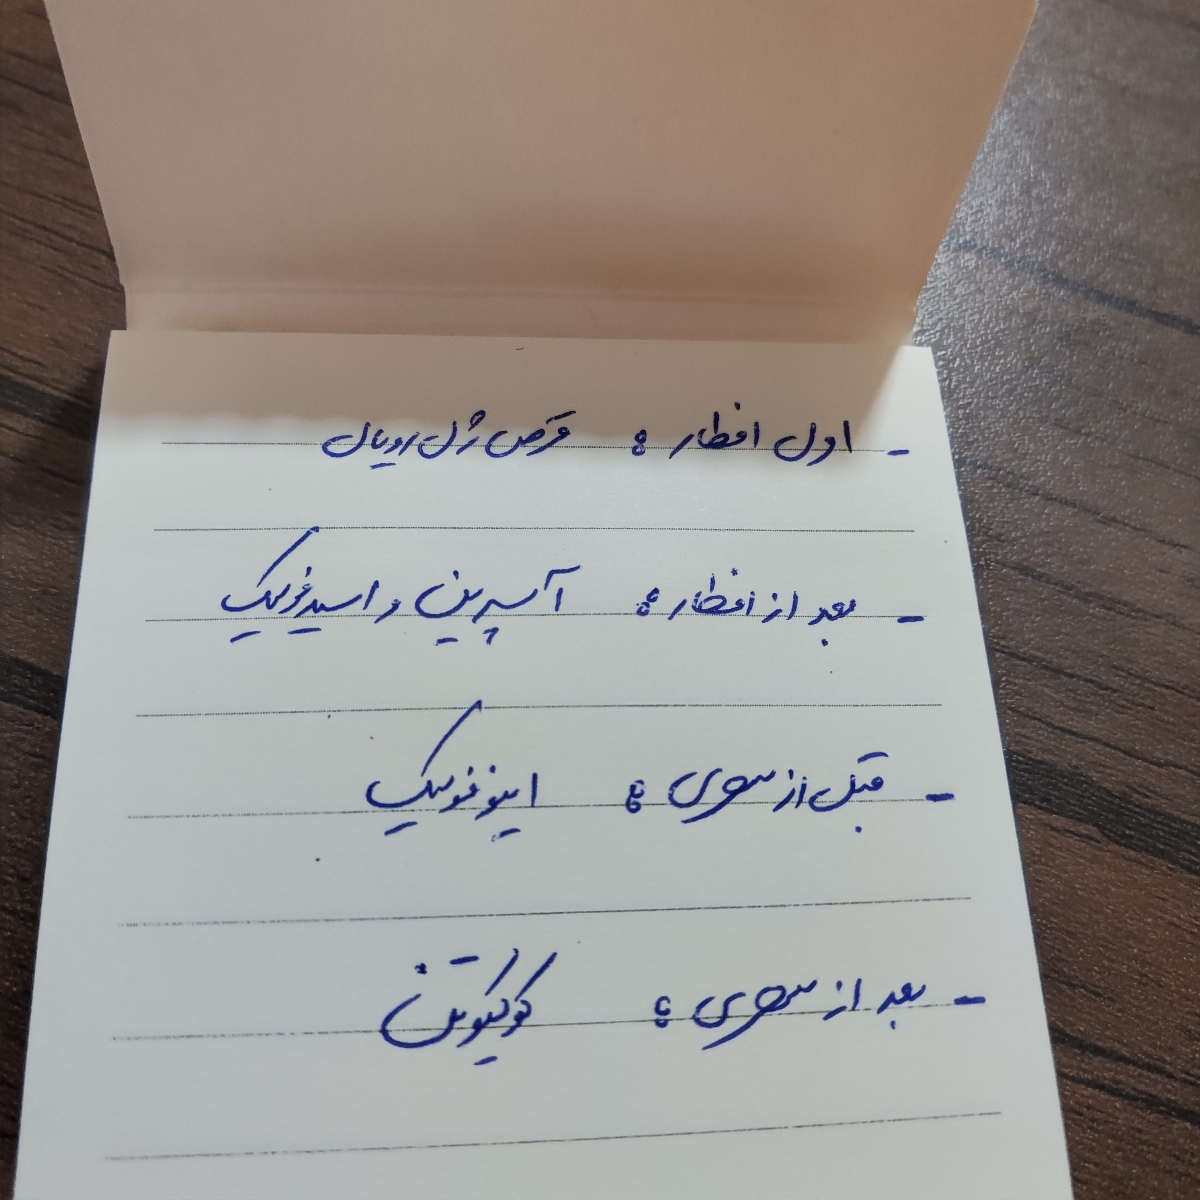 - اول افطار : قرص ژل رویال
- بعد از افطار : آسپرین و اسید فولیک
- قبل از سحری : اینوفولیک
- بعد از سحری : کوکیوتن